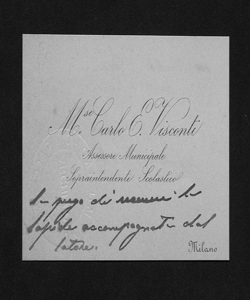 Mse Carlo E. Visconti
Assessore Municipale
Sopraintendente Scolastico
Si prega di
lapide accompagnata dal
latore.
Milano